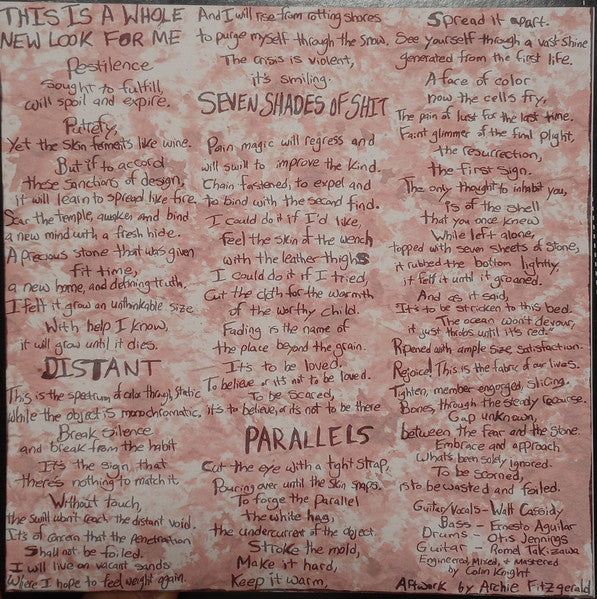 THIS IS A WHOLE
NEW LOOK FOR ME
Pestilence
sought to fulfill,
will spoil and expire.
Putrefy,
Yet the skin ferments like wine.
But if to accord
these sanctions of design,
it will learn to spread like fire.
Scar the temple, awaken and bind
a new mind with a fresh hide.
A precious stone that was given
fit time,
a new home, and defining truth.
I felt it grow an unthinkable size
With help I know,
it will grow until it dies.
DISTANT
This is the spectrum of color through static
while the object is monochromatic,
Break silence
and break from the habit
It's the sign that
there's nothing to match it.
Without touch,
the swill won't reach the distant void.
It's of concern that the penetration
Shall not be foiled.
I will live on vacant sands
Where I hope to feel weight again.
And I will rise from rotting shores
to purge myself through the snow.
The crisis is violent,
it's smiling.
SEVEN SHADES OF SHIT
Pain magic will regress and
will swill to improve the kind.
Chain fastened, to expel and
to bind with the second find.
I could do it if I'd like,
feel the skin of the wench
with the leather thighs
I could do it if I tried,
Cut the cloth for the warmth
of the worthy child.
Fading is the name of
the place beyond the grain.
It's to be loved.
To believe or it's not to be loved.
To be scared,
it's to believe, or it's not to be there
PARALLELS
Cut the eye with a tight strap,
Pouring over until the skin snaps.
To forge the parallel
the white hag,
the undercurrent of the object.
Stroke the mold,
Make it hard,
Keep it warm,
Spread it apart.
See yourself through a vast shine
generated from the first life.
A face of color
now the cells fry,
The pain of lust for the last time.
Faint glimmer of the final plight,
the resurrection,
the first sign.
The only thought to inhabit you,
Is of the shell
that you once knew
While left alone,
topped with seven sheets of stone,
it rubbed the bottom lightly,
it felt it until it groaned.
And as it said,
It's to be stricken to this bed.
The ocean won't devour,
it just throbs until it's red."
Ripened with ample size satisfaction.
Rejoice! This is the fabric of our lives.
Tighten, member engorged, slicing.
Bones, through the steady recourse.
Gap unknown,
between the fear and the stone.
Embrace and approach
What's been solely ignored.
To be scorned,
is to be wasted and foiled.
Guitar/Vocals - Walt Cassidy
Bass - Ernesto Aguilar
Drums - Otis Jennings
Guitar - Romel Takizawa
Engineered, Mixed, + Mastered
by Colin Knight
Artwork by Archie Fitzgerald